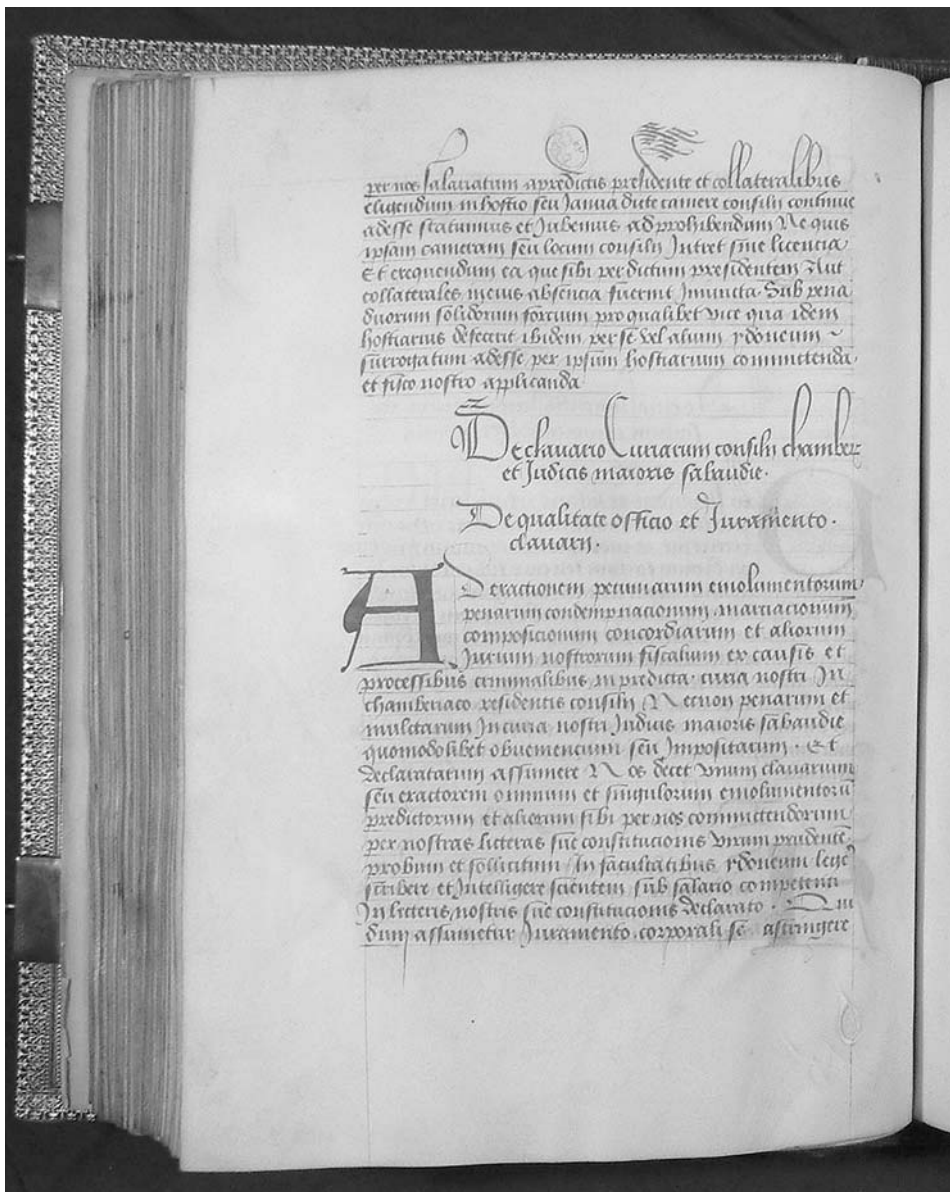 per nos salariatum a predictis presidente et collateralibus
eligendum in hostio seu Janua dicte camere consilij continue
adesse statuimus et Jubemus ad prohibendum Ne quis
ipsam cameram seu locum consilij Intret sine licencia
Et exequendum ea que sibi per dictum presidentem Aut
collaterales in eius absencia fuerint Iniuncta. Sub pena
duorum solidorum forcium pro qualibet vice qua idem
hostiarius defecerit ibidem per se vel alium ydoneum
surrogatum adesse per ipsum hostiarium committenda
et fisco nostro applicanda
De clavario Curiarum consilij chamber
et Judicis maioris sabaudie.
De qualitate officio et Juramento.
clavarij.
AD exactionem pecuniarum emolumentorum
penarum condempnacionum marciacionum
composicionum concordiarum et aliorum
Jurium nostrorum fiscalium ex causis et
processibus criminalibus in predicta curia nostri In
chamberiaco residentis consilij Necnon penarum et
mulctarum In curia nostri Judicis maioris sabaudie
quomodolibet obveniencium seu Impositarum. Et
declaratarum assumere Nos decet vnum clavarium
seu exactorem omnium et singulorum emolumentorū
predictorum et aliorum sibi per nos committendorum
per nostras licteras sue constitucionis virum prudentē
probum et sollicitum In facultatibus ydoneum lege
scribere et Intelligere scientem sub salario competenti
In licteris nostris sue constitucionis declarato. Qui
dum assumetur Juramento corporali se astringere